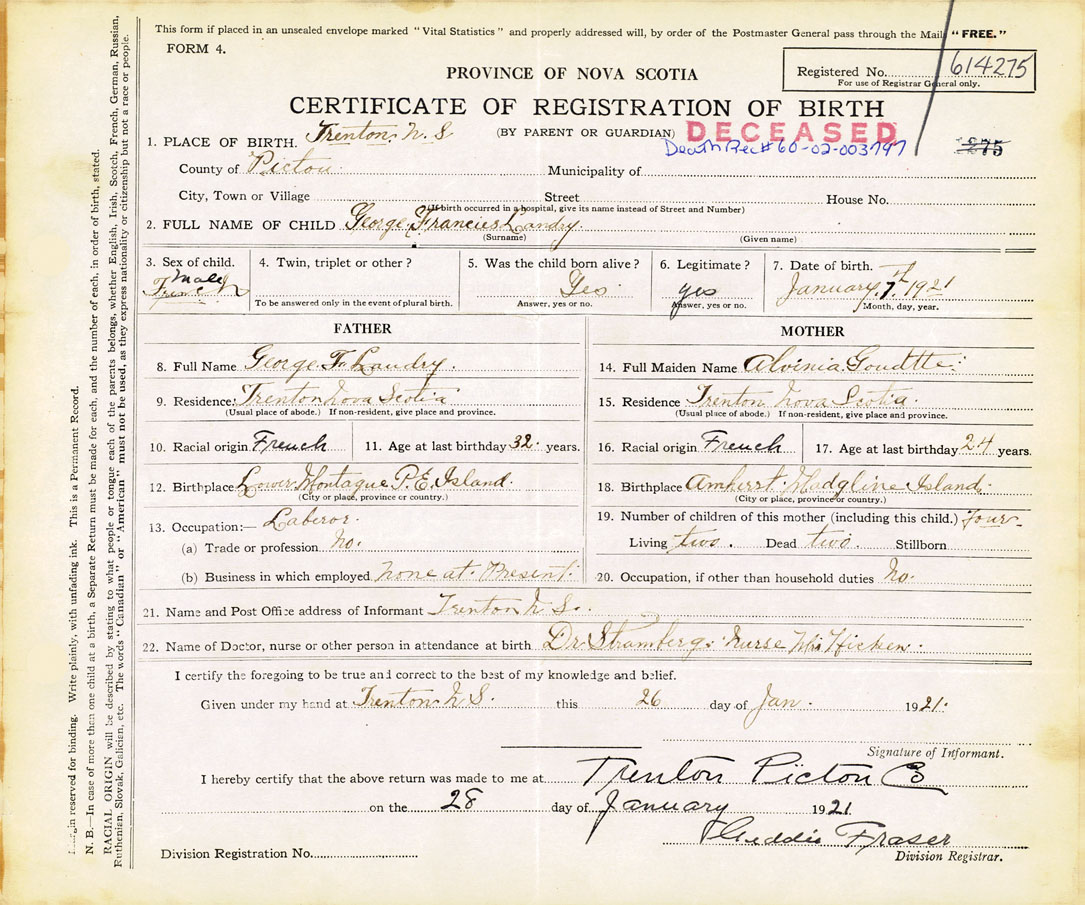 This form if placed in an unsealed envelope marked "Vital Statistics" and properly addressed will, by order of the Postmaster General pass through the Mail "FREE."
FORM 4.
Registered No. 614275
For use of Registrar General only.
PROVINCE OF NOVA SCOTIA
CERTIFICATE OF REGISTRATION OF BIRTH
(BY PARENT OR GUARDIAN) DECEASED
Death Rec# 60-02-003797
275
1. PLACE OF BIRTH. Trenton N. S
County of Pictou Municipality of
City, Town or Village Street House No.
(If birth occurred in a hospital, give its name instead of Street and Number)
2. FULL NAME OF CHILD George Francies Landry.
(Surname) (Given name)
3. Sex of child. 4. Twin, triplet or other? 5. Was the child born alive? 6. Legitimate? 7. Date of birth.
Male Yes yes January. 7th 1921
To be answered only in the event of plural birth. Answer, yes or no. Answer, yes or no. Month, day, year.
FATHER
8. Full Name George F. Landry.
9. Residence: Trenton Nova Scotia
(Usual place of abode.) If non-resident, give place and province.
10. Racial origin French 11. Age at last birthday 32. years.
12. Birthplace Lower Montague P. E. Island.
(City or place, province or country.)
13. Occupation:— Laberor.
(a) Trade or profession No.
(b) Business in which employed None at Present.
MOTHER
14. Full Maiden Name Alvinia Goudtte
15. Residence Trenton Nova Scotia.
(Usual place of abode.) If non-resident, give place and province.
16. Racial origin French 17. Age at last birthday 24 years.
18. Birthplace Amherst Madgline Island.
(City or place, province or country.)
19. Number of children of this mother (including this child.) Four
Living two. Dead two. Stillborn
20. Occupation, if other than household duties No.
21. Name and Post Office address of Informant Trenton N S.
22. Name of Doctor, nurse or other person in attendance at birth Dr. Stramberg. Nurse Mrs Hicken.
I certify the foregoing to be true and correct to the best of my knowledge and belief.
Given under my hand at Trenton N S. this 26 day of Jan. 1921.
Signature of Informant.
I hereby certify that the above return was made to me at Trenton Picton Co
on the 28 day of January 1921
Fraser
Division Registration No. Division Registrar.
Margin reserved for binding. Write plainly, with unfading ink. This is a Permanent Record.
N. B.—In case of more than one child at a birth, a Separate Return must be made for each, and the number of each, in order of birth, stated.
RACIAL ORIGIN will be described by stating to what people or tongue each of the parents belongs, whether English, Irish, Scotch, French, German, Russian,
Ruthenian, Slovak, Galician, etc. The words "Canadian" or "American" must not be used, as they express nationality or citizenship but not a race or people.